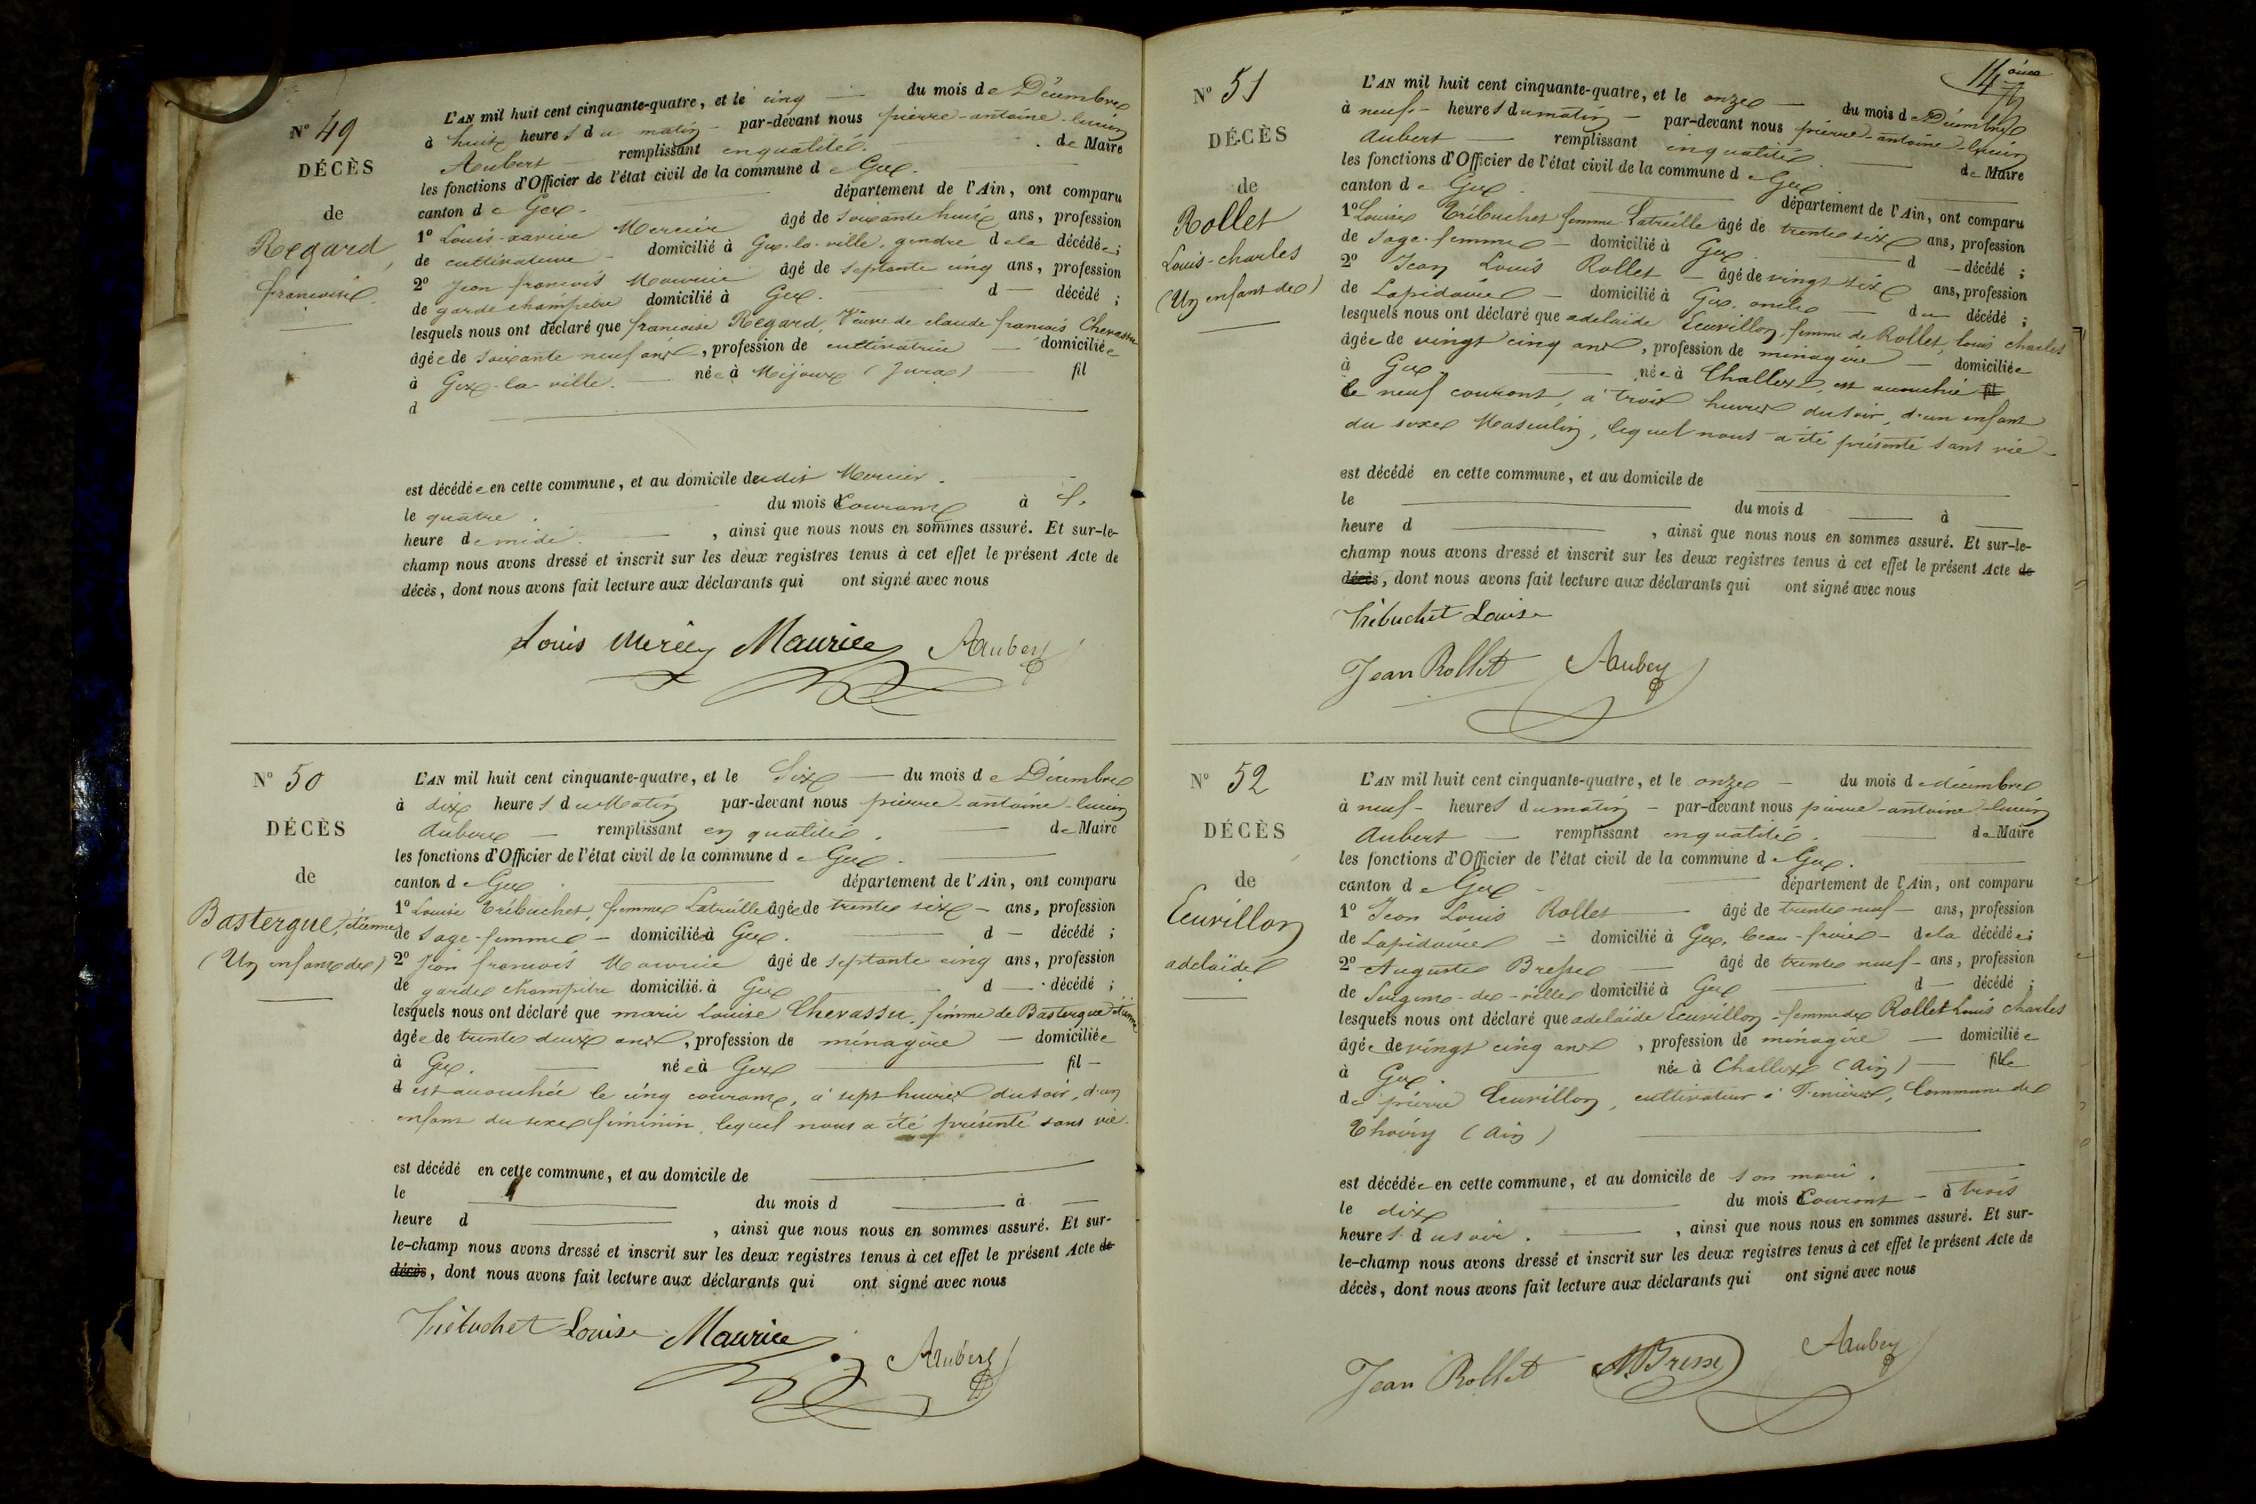 N° 49
DÉCÈS
de
Regard,
françoise.
L'AN mil huit cent cinquante-quatre, et le cinq — du mois de Décembre
à huit heures du matin — par-devant nous pierre-antoine-lucien
Aubert — remplissant en qualité. de Maire
les fonctions d'Officier de l'état civil de la commune de Gex.
canton de Gex. département de l'Ain, ont comparu
1° Louis-xavier Mercier âgé de soixante huit ans, profession
de cultivateur — domicilié à Gex-la-ville, gendre de la décédée;
2° Jean françois Maurice âgé de septante cinq ans, profession
de garde champêtre domicilié à Gex. d — décédé;
lesquels nous ont déclaré que françoise Regard, Veuve de claude françois Chevassu
âgée de soixante neuf ans, profession de cultivatrice — domiciliée
à Gex-la-ville. — née à Mijoux (Jura) — fil
d
est décédée en cette commune, et au domicile dudit Mercier.
le quatre. du mois Courant à l'
heure de midi. , ainsi que nous nous en sommes assuré. Et sur-le-
champ nous avons dressé et inscrit sur les deux registres tenus à cet effet le présent Acte de
décès, dont nous avons fait lecture aux déclarants qui ont signé avec nous
Louis Maurice Aubert
N° 50
DÉCÈS
de
Bastergue, étienne
(Un enfant de)
L'AN mil huit cent cinquante-quatre, et le Six — du mois de Décembre
à dix heures du Matin par-devant nous pierre-antoine-lucien
Aubert — remplissant en qualité. — de Maire
les fonctions d'Officier de l'état civil de la commune de Gex.
canton de Gex. département de l'Ain, ont comparu
1° Louise Trébuchet, femme Latreille âgée de trente six — ans, profession
de sage-femme — domiciliée à Gex. — d — décédé;
2° Jean françois Maurice âgé de septante cinq ans, profession
de garde champêtre domicilié à Gex d — décédé;
lesquels nous ont déclaré que marie Louise Chevassu, femme de Bastergue étienne
âgée de trente deux ans, profession de ménagère — domiciliée
à Gex. — née à Gex — fil —
d est accouchée le cinq courant, à sept heures du soir, d'un
enfant du sexe féminin, lequel nous a été présenté sans vie.
est décédé en cette commune, et au domicile de
le du mois d — à —
heure d — , ainsi que nous nous en sommes assuré. Et sur-
le-champ nous avons dressé et inscrit sur les deux registres tenus à cet effet le présent Acte de
décès, dont nous avons fait lecture aux déclarants qui ont signé avec nous
Trébuchet Louise Maurice Aubert
14
N° 51
DÉCÈS
de
Rollet
Louis-charles
(Un enfant de)
L'AN mil huit cent cinquante-quatre, et le onze — du mois de Décembre
à neuf — heures du matin — par-devant nous pierre-antoine-lucien
Aubert — remplissant en qualité. — de Maire
les fonctions d'Officier de l'état civil de la commune de Gex
canton de Gex. — département de l'Ain, ont comparu
1° Louise Trébuchet femme Latreille âgé de trente six ans, profession
de sage-femme — domicilié à Gex. — d — décédé;
2° Jean Louis Rollet — âgé de vingt six ans, profession
de Lapidaire — domicilié à Gex. oncle — du décédé;
lesquels nous ont déclaré que adelaïde Ecuvillon, femme de Rollet, louis charles
âgée de vingt cinq ans, profession de ménagère — domiciliée
à Gex. — née à Challex, est accouchée fil
le neuf courant, à trois heures du soir, d'un enfant
du sexe Masculin, lequel nous a été présenté sans vie —
est décédé en cette commune, et au domicile de
le — du mois d — à —
heure d — , ainsi que nous nous en sommes assuré. Et sur-le-
champ nous avons dressé et inscrit sur les deux registres tenus à cet effet le présent Acte de
décès, dont nous avons fait lecture aux déclarants qui ont signé avec nous
Trébuchet Louise
Jean Rollet Aubert
N° 52
DÉCÈS
de
Ecuvillon
adelaïde
L'AN mil huit cent cinquante-quatre, et le onze — du mois de décembre
à neuf — heures du matin — par-devant nous pierre-antoine-lucien
Aubert — remplissant en qualité. — de Maire
les fonctions d'Officier de l'état civil de la commune de Gex.
canton de Gex — département de l'Ain, ont comparu
1° Jean Louis Rollet — âgé de trente neuf — ans, profession
de Lapidaire — domicilié à Gex, beau-frère — de la décédée;
2° Auguste Bresse — âgé de trente neuf — ans, profession
de Sergent-de-ville domicilié à Gex — d — décédé;
lesquels nous ont déclaré que adelaïde Ecuvillon — femme de Rollet Louis charles
âgée de vingt cinq ans, profession de ménagère — domiciliée
à Gex. — née à Challex (Ain) — fille
de pierre Ecuvillon, cultivateur à Fenières, Commune de
Thoiry (Ain)
est décédée en cette commune, et au domicile de son mari.
le dix — du mois Courant — à trois
heures du soir. — , ainsi que nous nous en sommes assuré. Et sur-
le-champ nous avons dressé et inscrit sur les deux registres tenus à cet effet le présent Acte de
décès, dont nous avons fait lecture aux déclarants qui ont signé avec nous
Jean Rollet ABresse Aubert